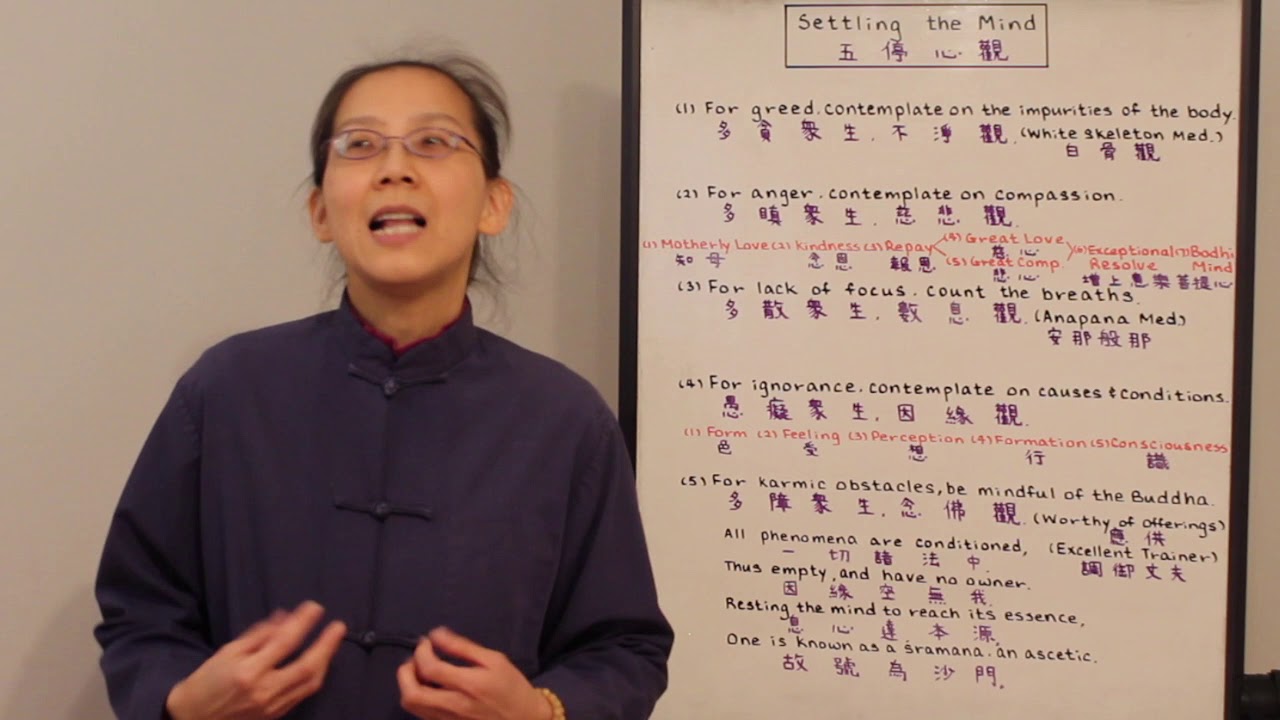 Settling the Mind
五 停 心 觀
(1) For greed, contemplate on the impurities of the body.
多 貪 衆 生, 不 淨 觀. (White Skeleton Med.)
白 骨 觀
(2) For anger, contemplate on compassion.
多 瞋 衆 生, 慈 悲 觀.
(1) Motherly Love (2) Kindness (3) Repay (4) Great Love (5) Great Comp. (6) Exceptional Resolve (7) Bodhi Mind
知 母 念 恩 報 恩 慈 心 悲 心 增 上 意 樂 菩 提 心
(3) For lack of focus, count the breaths.
多 散 衆 生, 數 息 觀. (Anapana Med.)
安 那 般 那
(4) For ignorance, contemplate on causes & conditions.
愚 癡 衆 生, 因 緣 觀.
(1) Form (2) Feeling (3) Perception (4) Formation (5) Consciousness
色 受 想 行 識
(5) For karmic obstacles, be mindful of the Buddha.
多 障 衆 生, 念 佛 觀. (Worthy of Offerings)
應 供
All phenomena are conditioned, (Excellent Trainer)
一 切 諸 法 中, 調 御 丈 夫
Thus empty, and have no owner.
因 緣 空 無 我.
Resting the mind to reach its essence,
息 心 達 本 源,
One is known as a śramana, an ascetic.
故 號 為 沙 門.